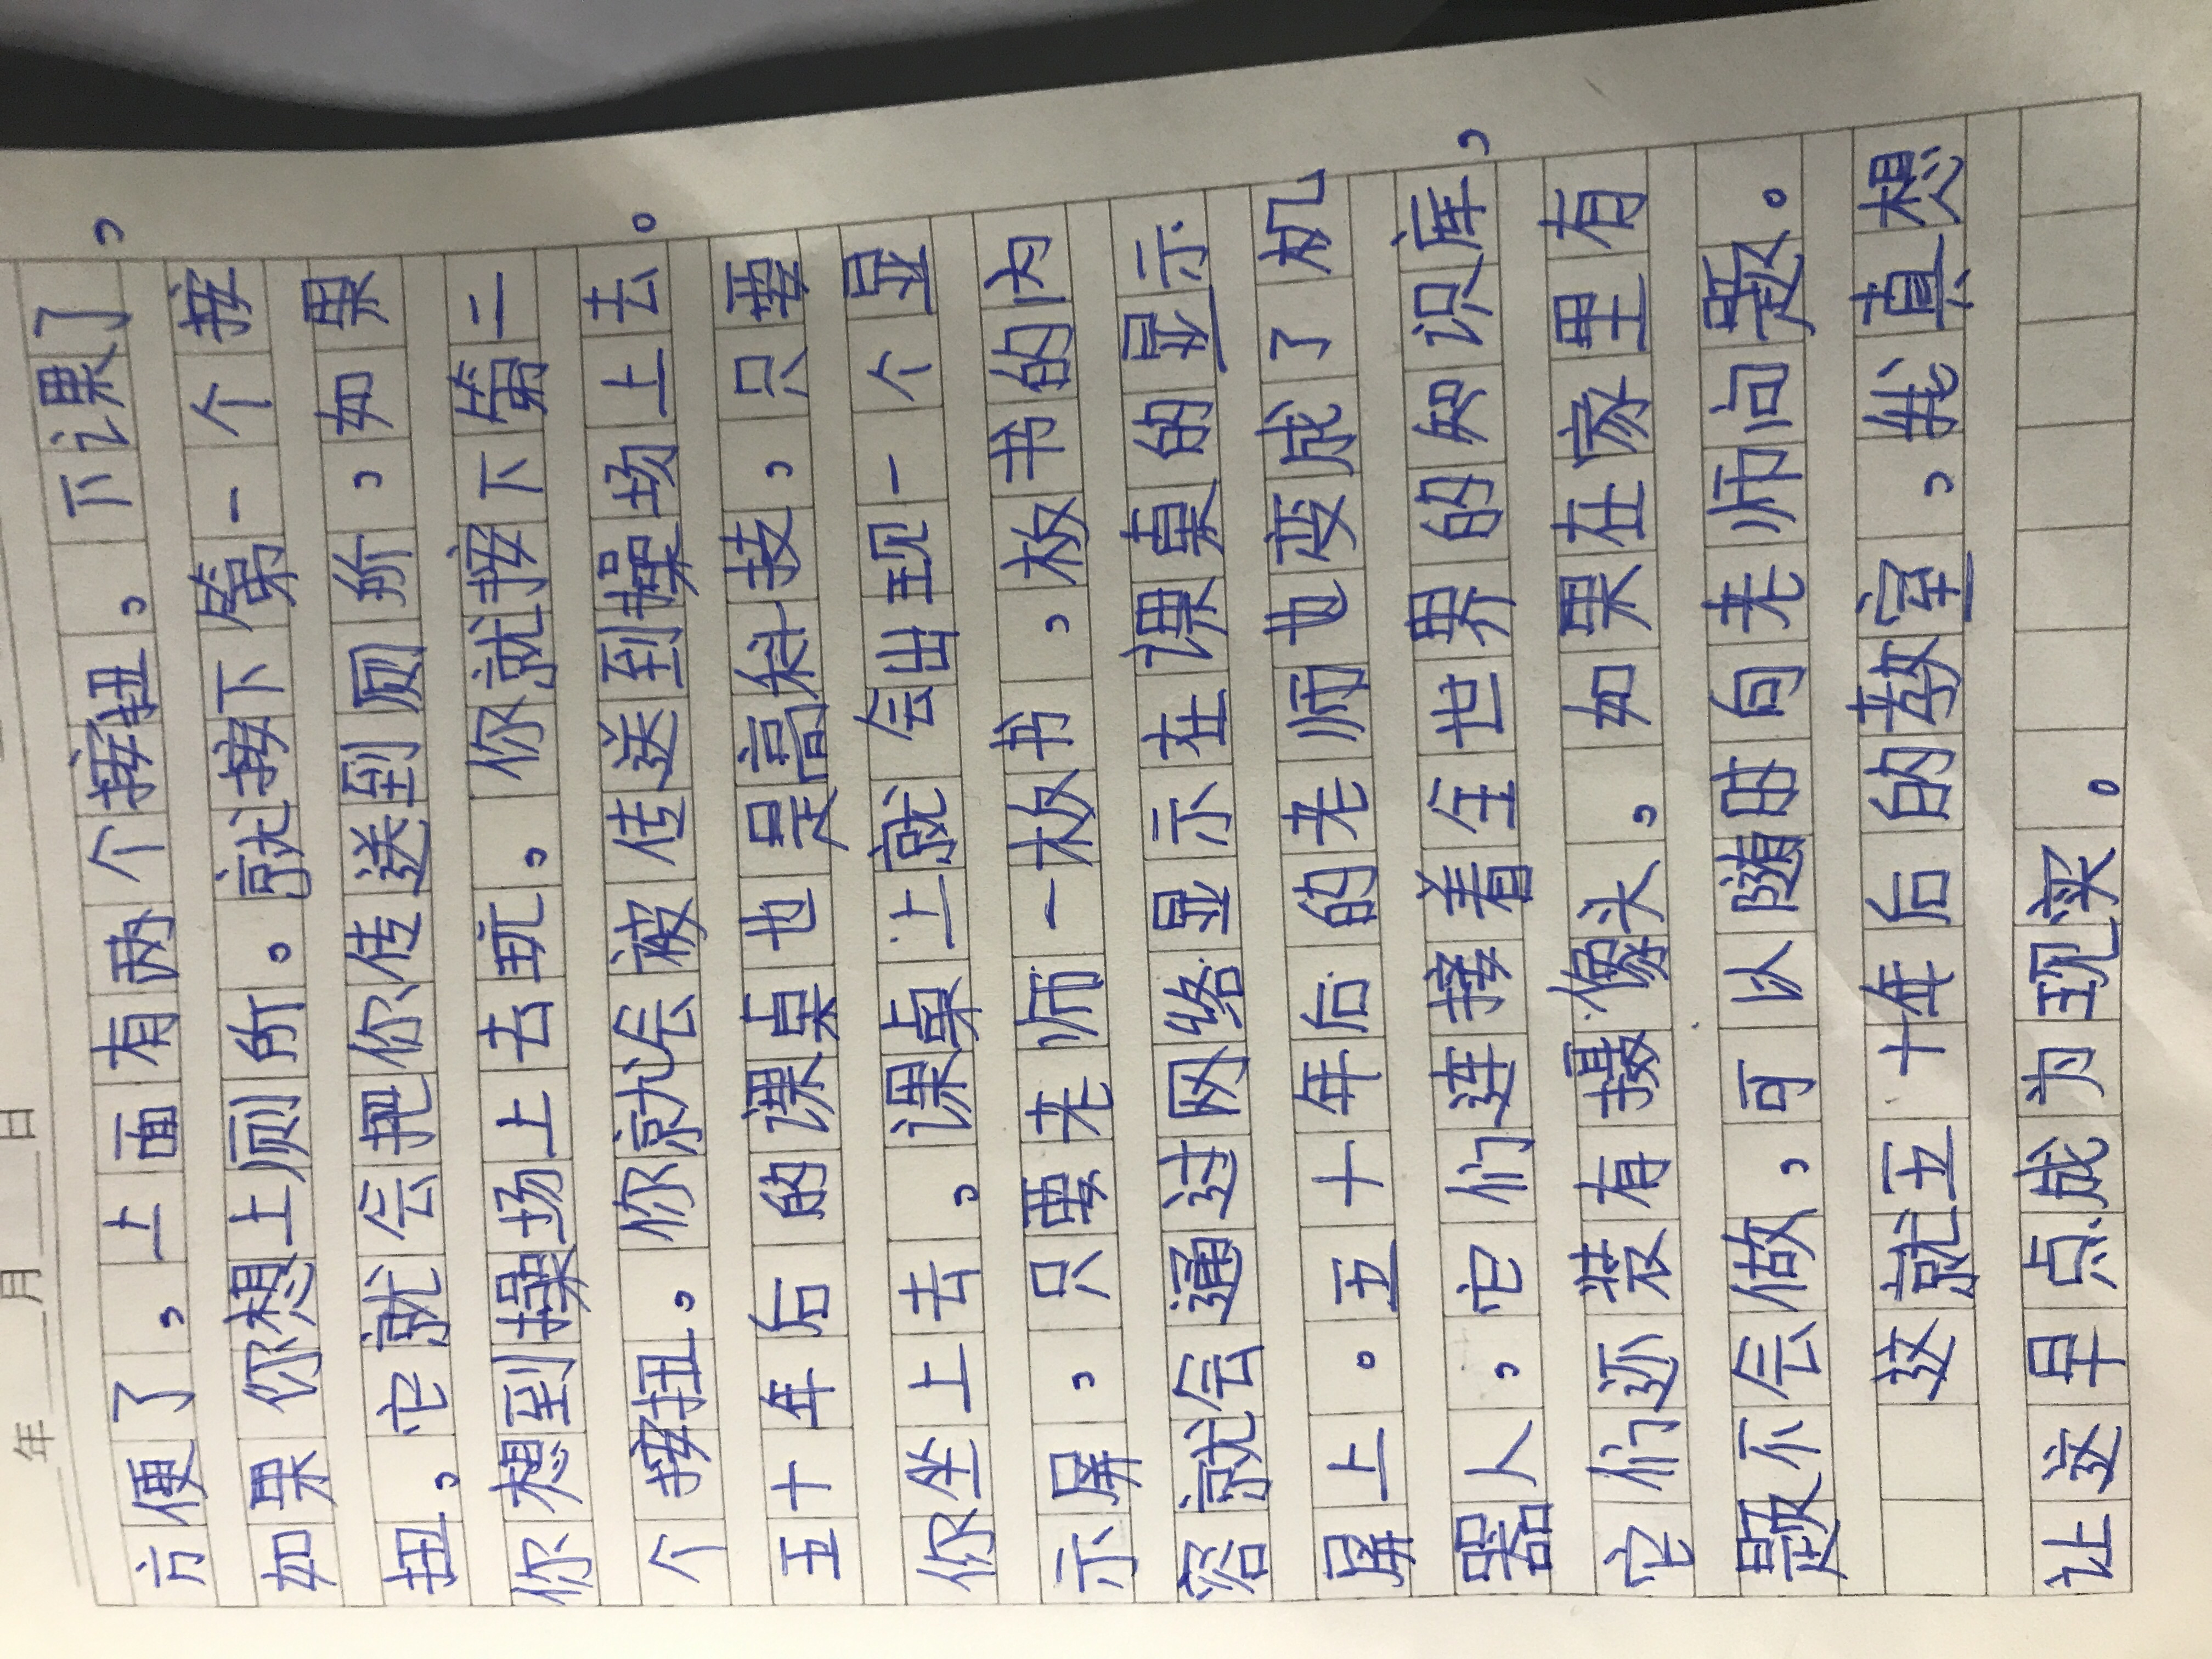 年 月 日
方便了，上面有两个按扭，下课了，
如果你想上厕所。就按下第一个按
扭，它就会把你传送到厕所，如果
你想到操场上去玩，你就按下第二
个按扭，你就会被传送到操场上去。
五十年后的课桌也是高科技，只要
你坐上去，课桌上就会出现一个显
示屏，只要老师一板书，板书的内
容就会通过网络显示在课桌的显示
屏上。五十年后的老师也变成了机
器人，它们连接着全世界的知识库，
它们还装有摄像头，如果在家里有
题不会做，可以随时向老师问题。
这就五十年后的教室，我真想
让这早点成为现实。